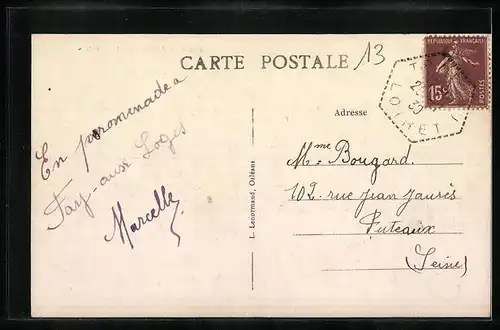 CARTE POSTALE
13
RÉPUBLIQUE FRANÇAISE
15c
POSTES
LOIRET
30
Adresse
En promenade a
Fay-aux Loges
Marcelle
L. Lenormand, Orléans
Mme Bougard.
102. rue Jean Jaurès
Puteaux
(Seine)